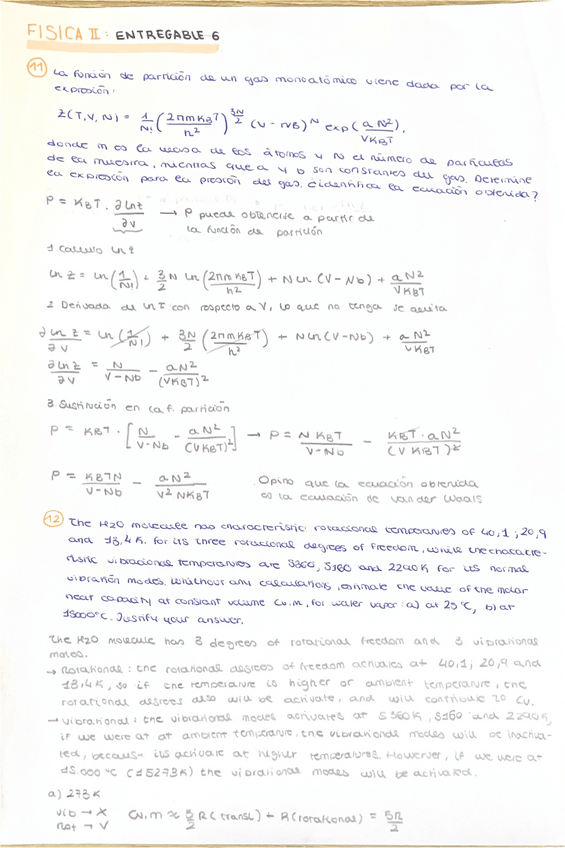 FISICA II: ENTREGABLE 6
11 La función de partición de un gas monoatómico viene dada por la
expresión:
Z(T,V,N) = 1/N! (2πmKBT/h²)^(3N/2) (V - NB)^N exp(aN²/VKBT),
donde m es la masa de los átomos y N el número de partículas
de la muestra, mientras que a y b son constantes del gas. Determine
la expresión para la presión del gas. ¿Identifica la ecuación obtenida?
P = KBT · ∂lnz/∂V → P puede obtenerse a partir de
la función de partición
1 Calculo ln z
ln z = ln(1/N!) + 3/2 N ln(2πmKBT/h²) + N ln(V-Nb) + aN²/VKBT
2 Derivada de ln z con respecto a V, lo que no tenga se quita
∂ln z/∂V = ln(1/N!) + 3N/2 (2πmKBT/h²) + N ln(V-Nb) + aN²/VKBT
∂ln z/∂V = N/V-Nb - aN²/(VKBT)²
3 Sustitución en la f. partición
P = KBT · [N/V-Nb - aN²/(VKBT)²] → P = NKBT/V-Nb - KBT·aN²/(VKBT)²
P = KBTN/V-Nb - aN²/V²NKBT Opino que la ecuación obtenida
es la ecuación de van der Waals
12 The H2O molecule has characteristic rotational temperatures of 40,1; 20,9
and 13,4 K. for its three rotational degrees of freedom, while the characte-
ristic vibrational temperatures are 5360, 5160 and 2290 K for its normal
vibration modes. Whithout any calculations, estimate the value of the molar
heat capacity at constant volume Cv.m, for water vapor: a) at 25 °C, b) at
15000°C. Justify your answer.
The H2O molecule has 3 degrees of rotational freedom and 3 vibrational
modes.
→ Rotational: the rotational degrees of freedom activates at 40,1; 20,9 and
13,4K, so if the temperature is higher or ambient temperature, the
rotational degrees also will be activate, and will contribute to Cv.
→ Vibrational: the vibrational modes activates at 5360K, 5160 and 2290K,
if we were at at ambient temperature, the vibrational modes will be inactiva-
ted, because its activate at higher temperatures. However, if we were at
15 000 °C (15273K) the vibrational modes will be activated.
a) 273K
vib → X Cv.m ≈ 3/2 R (transl) + R(rotational) = 5R/2
Rot → V